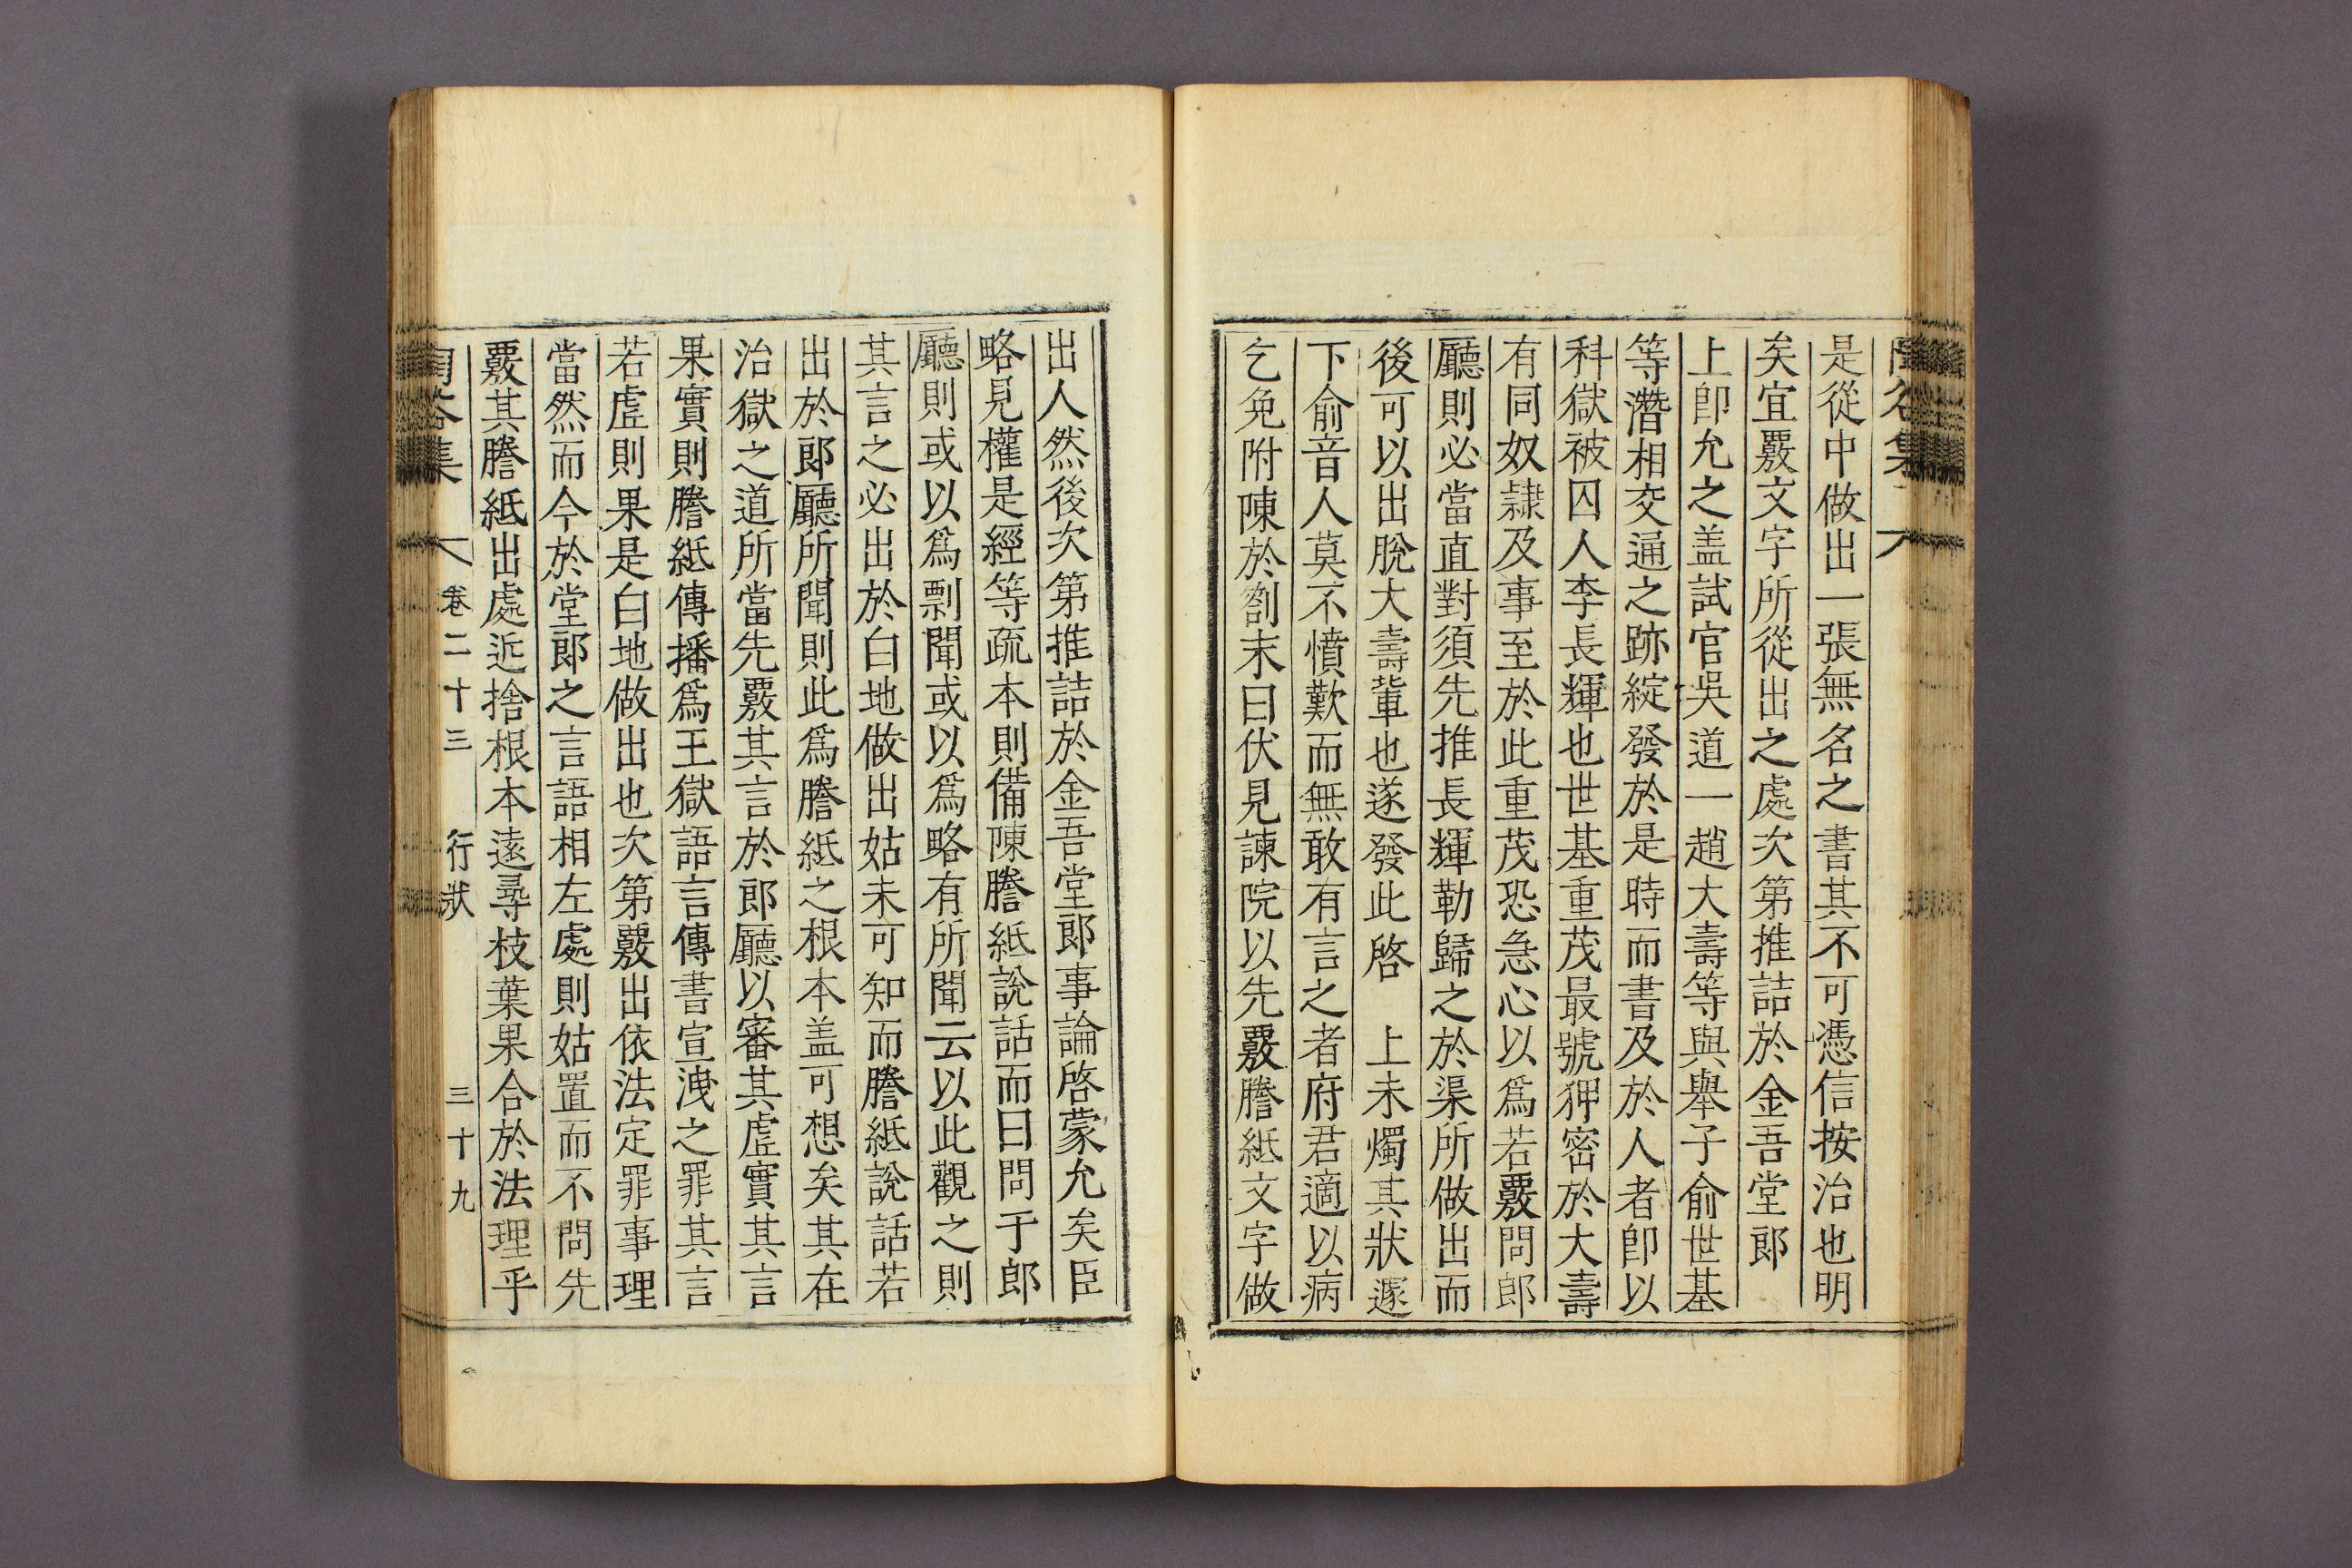 是從中做出一張無名之書其不可憑信按治也明
矣宜覈文字所從出之處次第推詰於金吾堂郎
上卽允之盖試官吳道一趙大壽等與擧子俞世基
等潛相交通之跡綻發於是時而書及於人者卽以
科獄被囚人李長輝也世基重茂最號狎密於大壽
有同奴隷及事至於此重茂恐急心以爲若覈問郎
廳則必當直對須先推長輝勒歸之於渠所做出而
後可以出脫大壽軰也遂發此啓　上未燭其狀遽
下俞音人莫不憤歎而無敢有言之者府君適以病
乞免附陳於劄末曰伏見諫院以先覈謄紙文字做
出人然後次第推詰於金吾堂郎事論啓蒙允矣臣
略見權是經等疏本則備陳謄紙說話而曰問于郎
廳則或以爲剽聞或以爲略有所聞云以此觀之則
其言之必出於白地做出姑未可知而謄紙說話若
出於郎廳所聞則此爲謄紙之根本盖可想矣其在
治獄之道所當先覈其言於郎廳以審其虛實其言
果實則謄紙傳播爲王獄語言傳書宣洩之罪其言
若虛則果是白地做出也次第覈出依法定罪事理
當然而今於堂郎之言語相左處則姑置而不問先
覈其謄紙出處近捨根本遠尋枝葉果合於法理乎
卷二十三　行狀　三十九